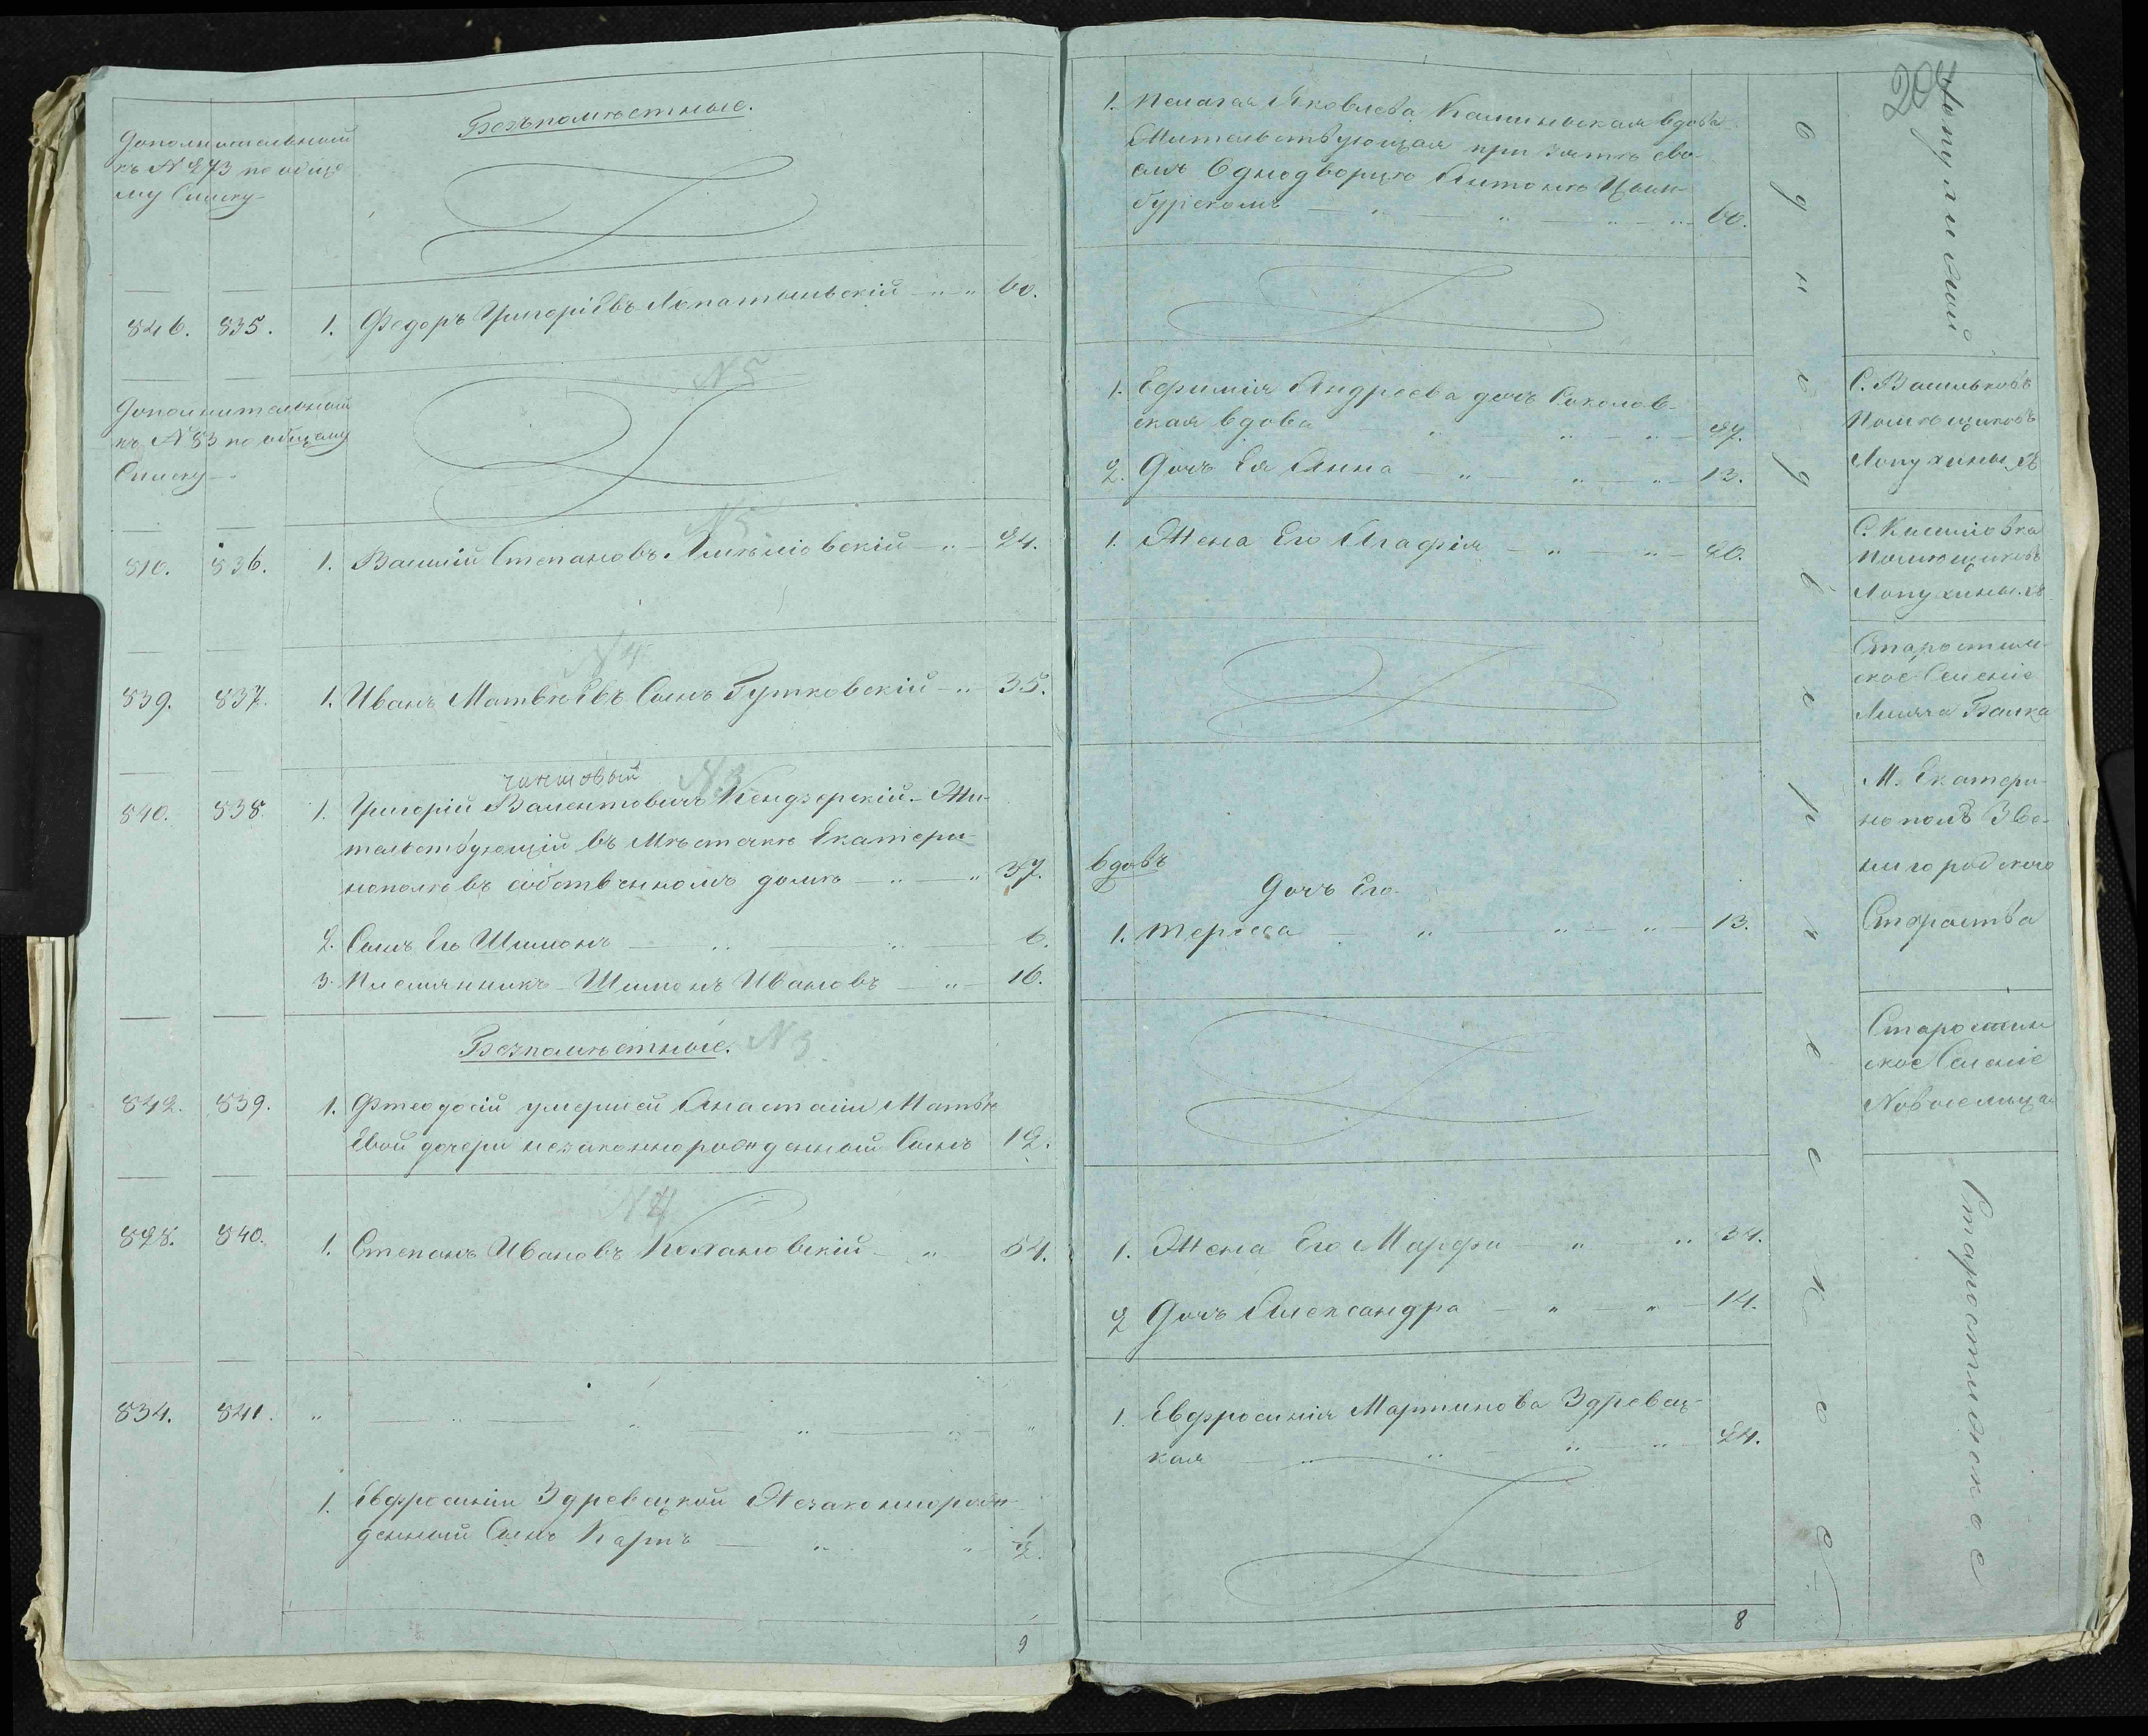 Безъпоместные.
Дополнительный
къ № 273 по обще
му Списку
846. 835. 1. Федоръ Григоріевъ Лопатынскій 60.
№ 5
Дополнительный
къ № 83 по общему
Списку
№ 5
810. 836. 1. Василій Степановъ 24.
№ 4
839. 837. 1. Иванъ Матвѣевъ Сынъ Гутковскій 35.
чиншовый № 3
840. 838. 1. Григорій Валентовичъ Кендзерскій Жи-
тельствующій въ Мѣстечкѣ Екатери-
нополѣ въ собственномъ домѣ 37.
2. Сынъ Его Шимонъ 6.
3. Племянникъ Шимонъ Ивановъ 16.
Безпомѣстные. № 3
842. 839. 1. Фтеодосій умершей Анастасіи Матвѣ
евой дочери незаконнорожденный Сынъ 12.
№ 4
828. 840. 1. Степанъ Ивановъ Кохановскій 54.
834. 841.
1. Евфросиніи Здревецкой Незаконнорож
денный Сынъ Карпъ 1/2.
9
204
1. Пелагея Яковлева Калиновская вдова
Жительствующая при зятѣ сво-
емъ Однодворцѣ Антонѣ Цым-
бурскомъ 60.
1. Ефимія Андреева дочь Соколов-
ская вдова 37.
2. Дочь Ея Анна 13.
1. Жена Его Агафія 20.
вдовъ
Дочь Его
1. Тереса 13.
1. Жена Его Марфа 34.
2 Дочь Александра 14.
1. Евфросинія Мартинова Здревец-
кая 24.
8
Однодворческое
С. Васильковъ
Помѣщиковъ
Лопухиныхъ
С. Киселіовка
Помѣщиковъ
Лопухиныхъ
Старостин-
ское Селеніе
Лисяча Балка
М. Екатери-
нополь Зве-
нигородского
Староства
Старостин
ское Селеніе
Новоселица
Старостинское